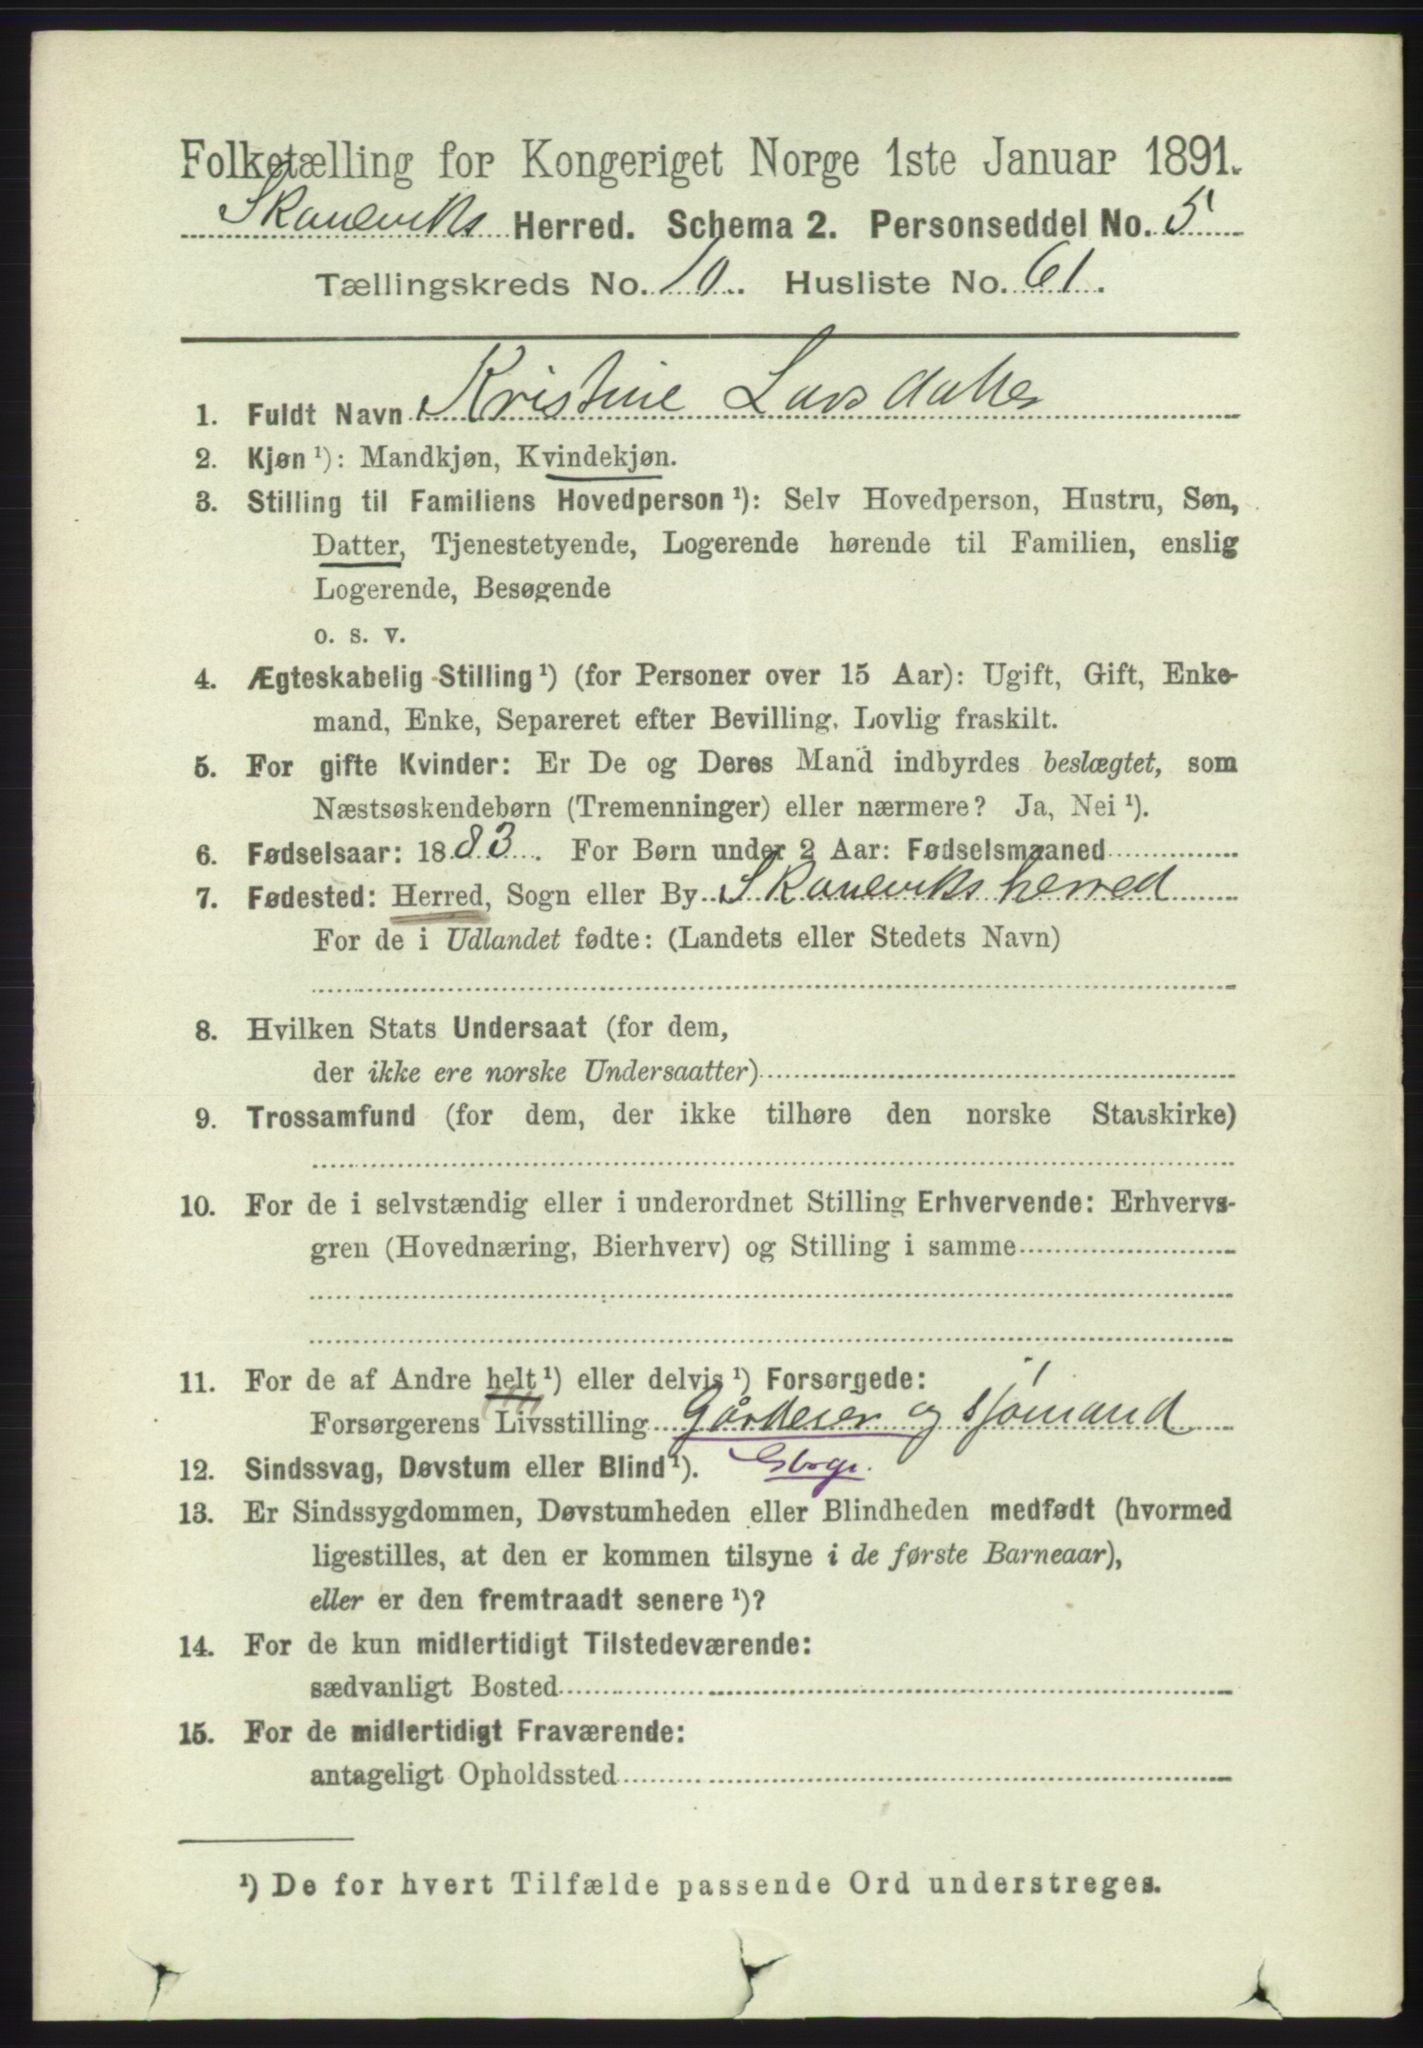 Folketælling for Kongeriget Norge 1ste Januar 1891.
Skaneviks Herred. Schema 2. Personseddel No. 5
Tællingskreds No. 10. Husliste No. 61.
1. Fuldt Navn Kristine Larsdatter
2. Kjøn ¹): Mandkjøn, Kvindekjøn.
3. Stilling til Familiens Hovedperson ¹): Selv Hovedperson, Hustru, Søn,
Datter, Tjenestetyende, Logerende hørende til Familien, enslig
Logerende, Besøgende
o. s. v.
4. Ægteskabelig Stilling ¹) (for Personer over 15 Aar): Ugift, Gift, Enke-
mand, Enke, Separeret efter Bevilling. Lovlig fraskilt.
5. For gifte Kvinder: Er De og Deres Mand indbyrdes beslægtet, som
Næstsøskendebørn (Tremenninger) eller nærmere? Ja, Nei ¹).
6. Fødselsaar: 1883. For Børn under 2 Aar: Fødselsmaaned
7. Fødested: Herred, Sogn eller By Skaneviks herred
For de i Udlandet fødte: (Landets eller Stedets Navn)
8. Hvilken Stats Undersaat (for dem,
der ikke ere norske Undersaatter)
9. Trossamfund (for dem, der ikke tilhøre den norske Statskirke)
10. For de i selvstændig eller i underordnet Stilling Erhvervende: Erhvervs-
gren (Hovednæring, Bierhverv) og Stilling i samme
11. For de af Andre helt ¹) eller delvis ¹) Forsørgede:
Forsørgerens Livsstilling Gårdeier og sjömand
12. Sindssvag, Døvstum eller Blind ¹).
13. Er Sindssygdommen, Døvstumheden eller Blindheden medfødt (hvormed
ligestilles, at den er kommen tilsyne i de første Barneaar),
eller er den fremtraadt senere ¹)?
14. For de kun midlertidigt Tilstedeværende:
sædvanligt Bosted
15. For de midlertidigt Fraværende:
antageligt Opholdssted
¹) De for hvert Tilfælde passende Ord understreges.